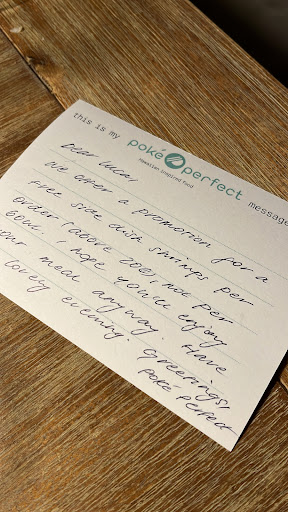 this is my poké perfect message
Hawaiian inspired food
Dear Luca,
We offer a promotion for a
free side dish shrimps per
order (above 20e), not per
bowl. I hope you'll enjoy
your meal anyway. Have
lovely evening.
Greetings,
Poké Perfect